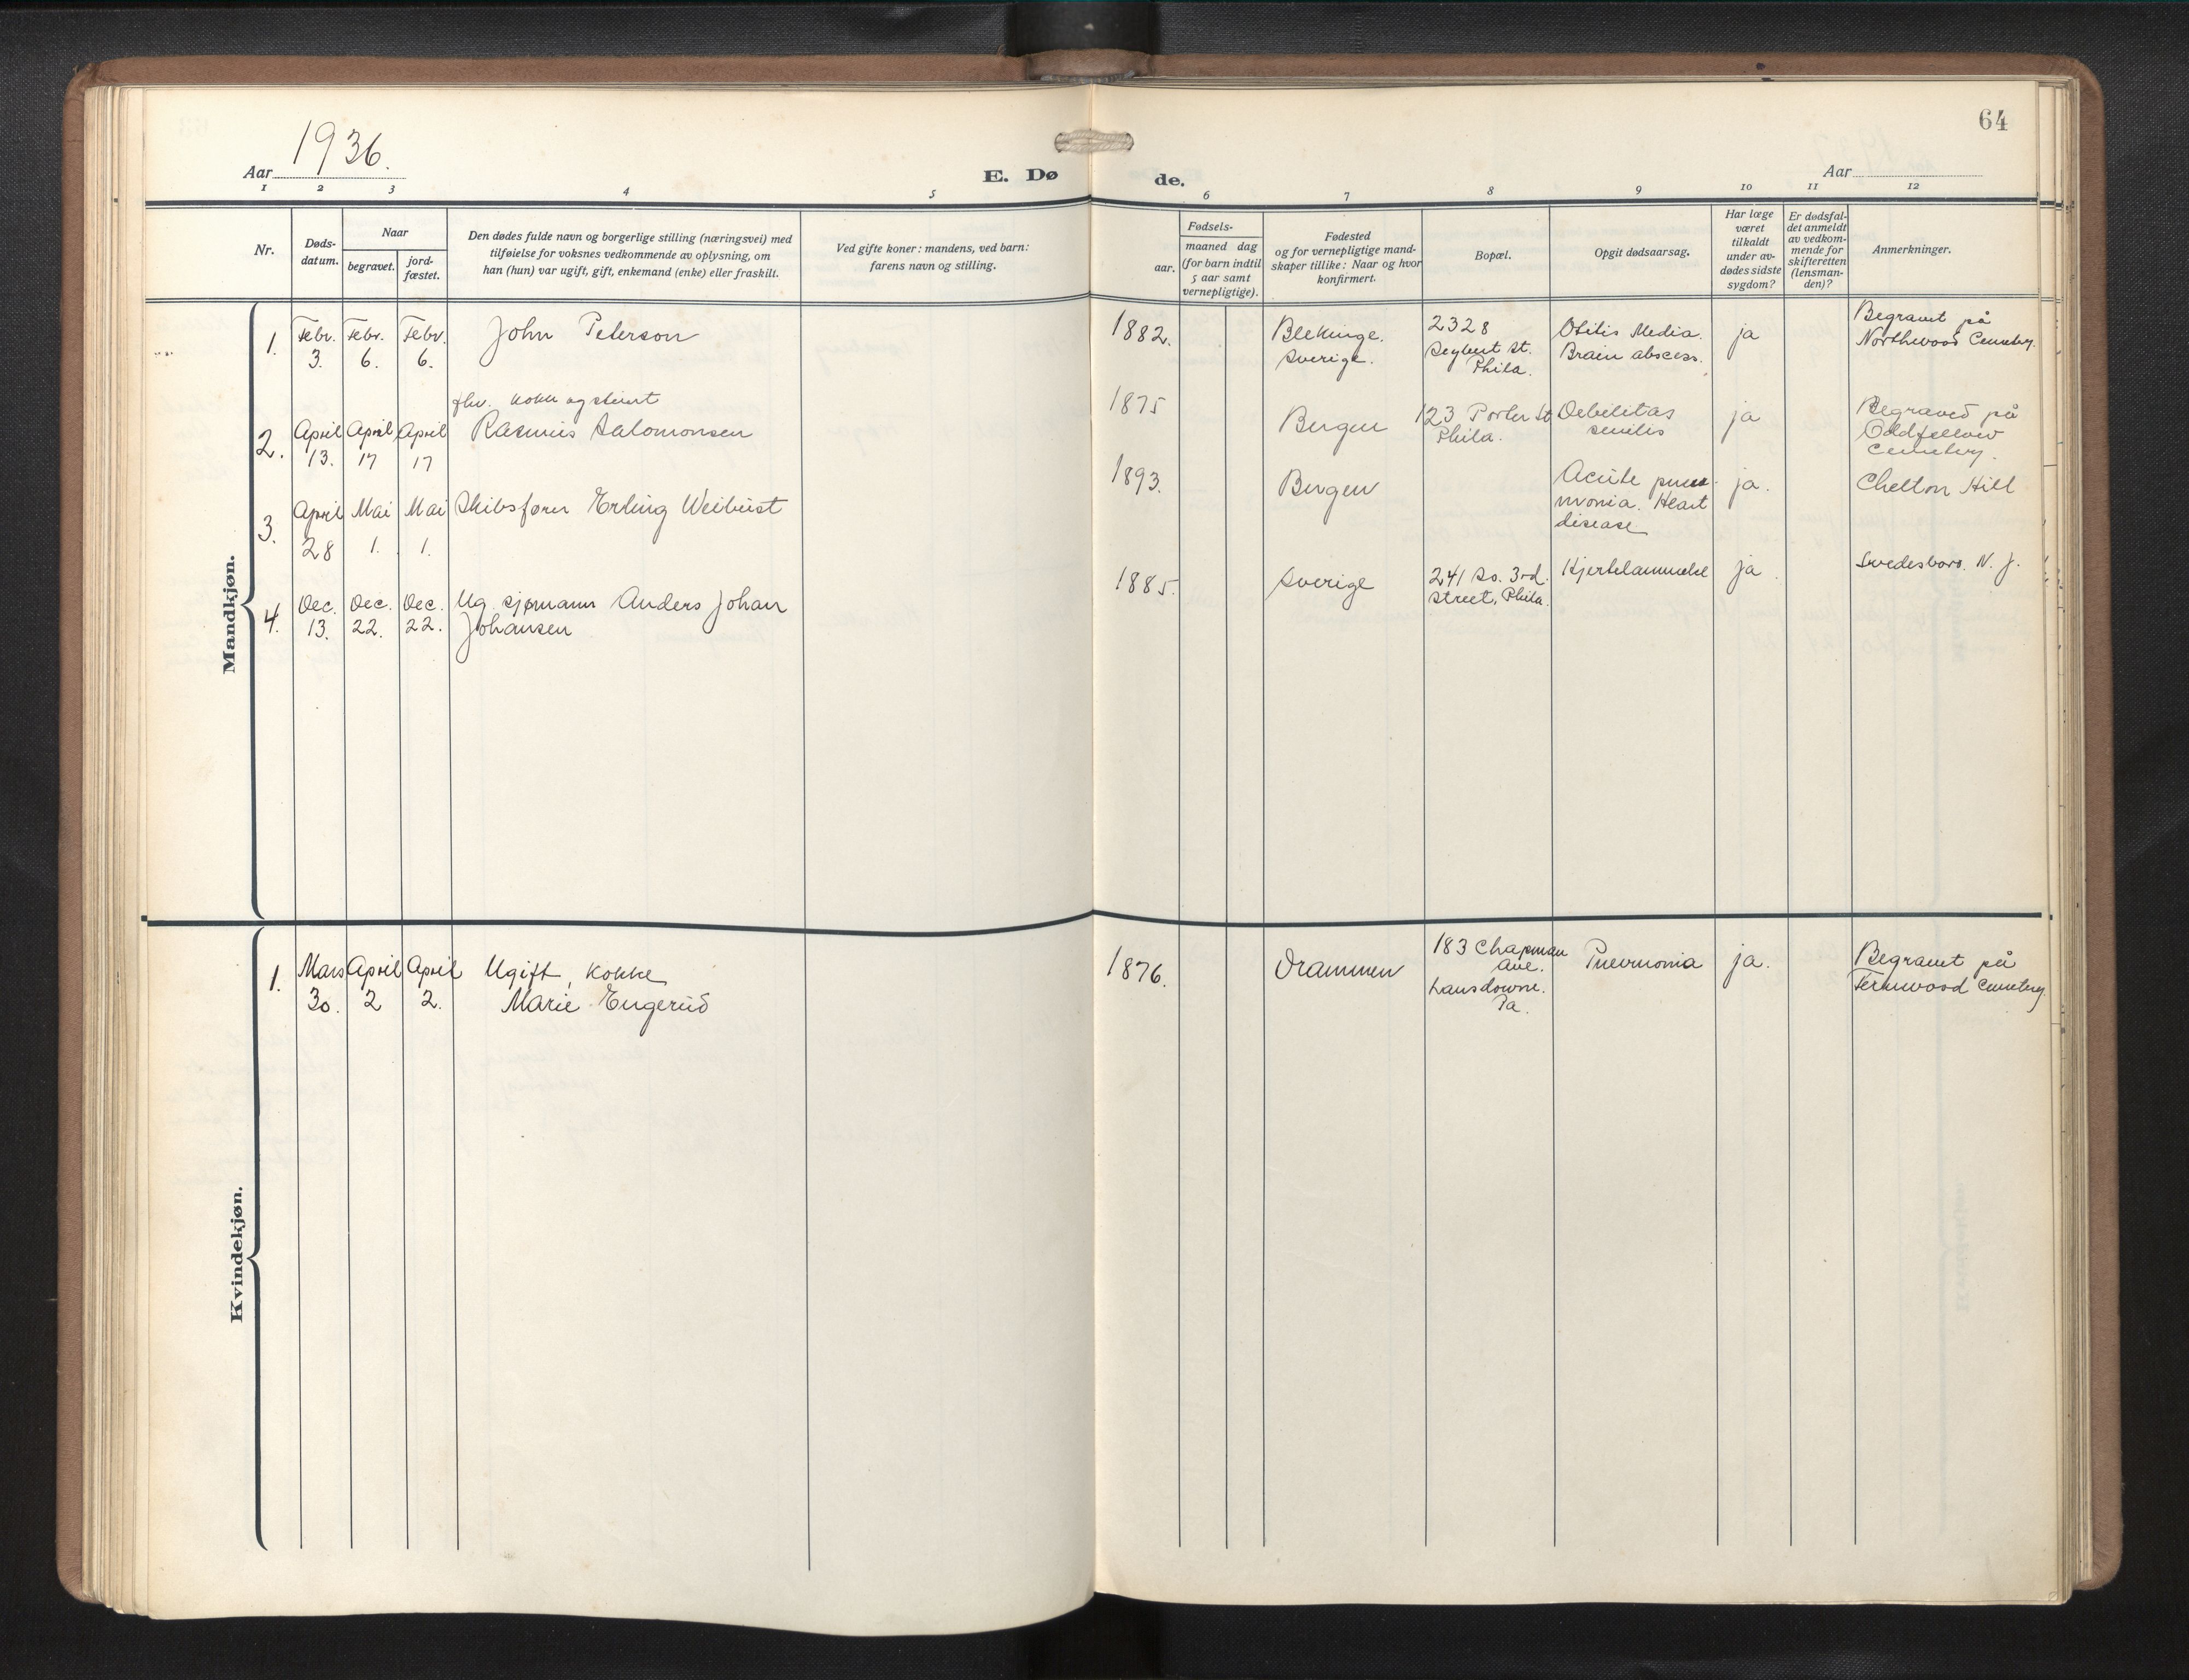 64
Aar 1936.
E. Døde.
Aar
1 2 3 4 5 6 7 8 9 10 11 12
Nr.
Døds-
datum.
Naar
begravet.
jord-
fæstet.
Den dødes fulde navn og borgerlige stilling (næringsvei) med
tilføielse for voksnes vedkommende av oplysning, om
han (hun) var ugift, gift, enkemand (enke) eller fraskilt.
Ved gifte koner: mandens, ved barn:
farens navn og stilling.
Fødsels-
aar.
maaned dag
(for barn indtil
5 aar samt
vernepligtige).
Fødested
og for vernepligtige mand-
skaper tillike: Naar og hvor
konfirmert.
Bopæl.
Opgit dødsaarsag.
Har læge
været
tilkaldt
under av-
dødes sidste
sygdom?
Er dødsfal-
det anmeldt
av vedkom-
mende for
skifteretten
(lensman-
den)?
Anmerkninger.
Mandkjøn.
1.
Febr.
3.
Febr.
6.
Febr.
6.
John Peterson
1882.
Blekinge.
Sverige.
2328
Seybert St.
Phila.
Otitis Media.
Brain abscess.
ja
Begravet på
Northwood Cemetery.
2.
April
13.
April
17
April
17
fhv. kokk og stuert
Rasmus Salomonsen
1875
Bergen
123 Porter St
Phila.
Debilitas
senilis
ja
Begraved på
Oddfellow
Cemetery.
3.
April
28
Mai
1.
Mai
1.
Skibsfører Erling
1893.
Bergen
Acute pneu-
monia. Heart
disease
ja.
Chelton Hill
4.
Dec.
13.
Dec.
22.
Dec.
22.
Ug. sjømann Anders Johan
Johansen
1885.
Sverige
241 So. 3rd.
Street, Phila.
Hjertelammelse
ja
Swedesboro. N. J.
Kvindekjøn.
1.
Mars
30.
April
2
April
2.
Ugift, kokke
Marie Engerud
1876.
Drammen
183 Chapman
Ave.
Lansdowne.
Pa.
Pneumonia
ja.
Begravet på
Fernwood Cemetery.